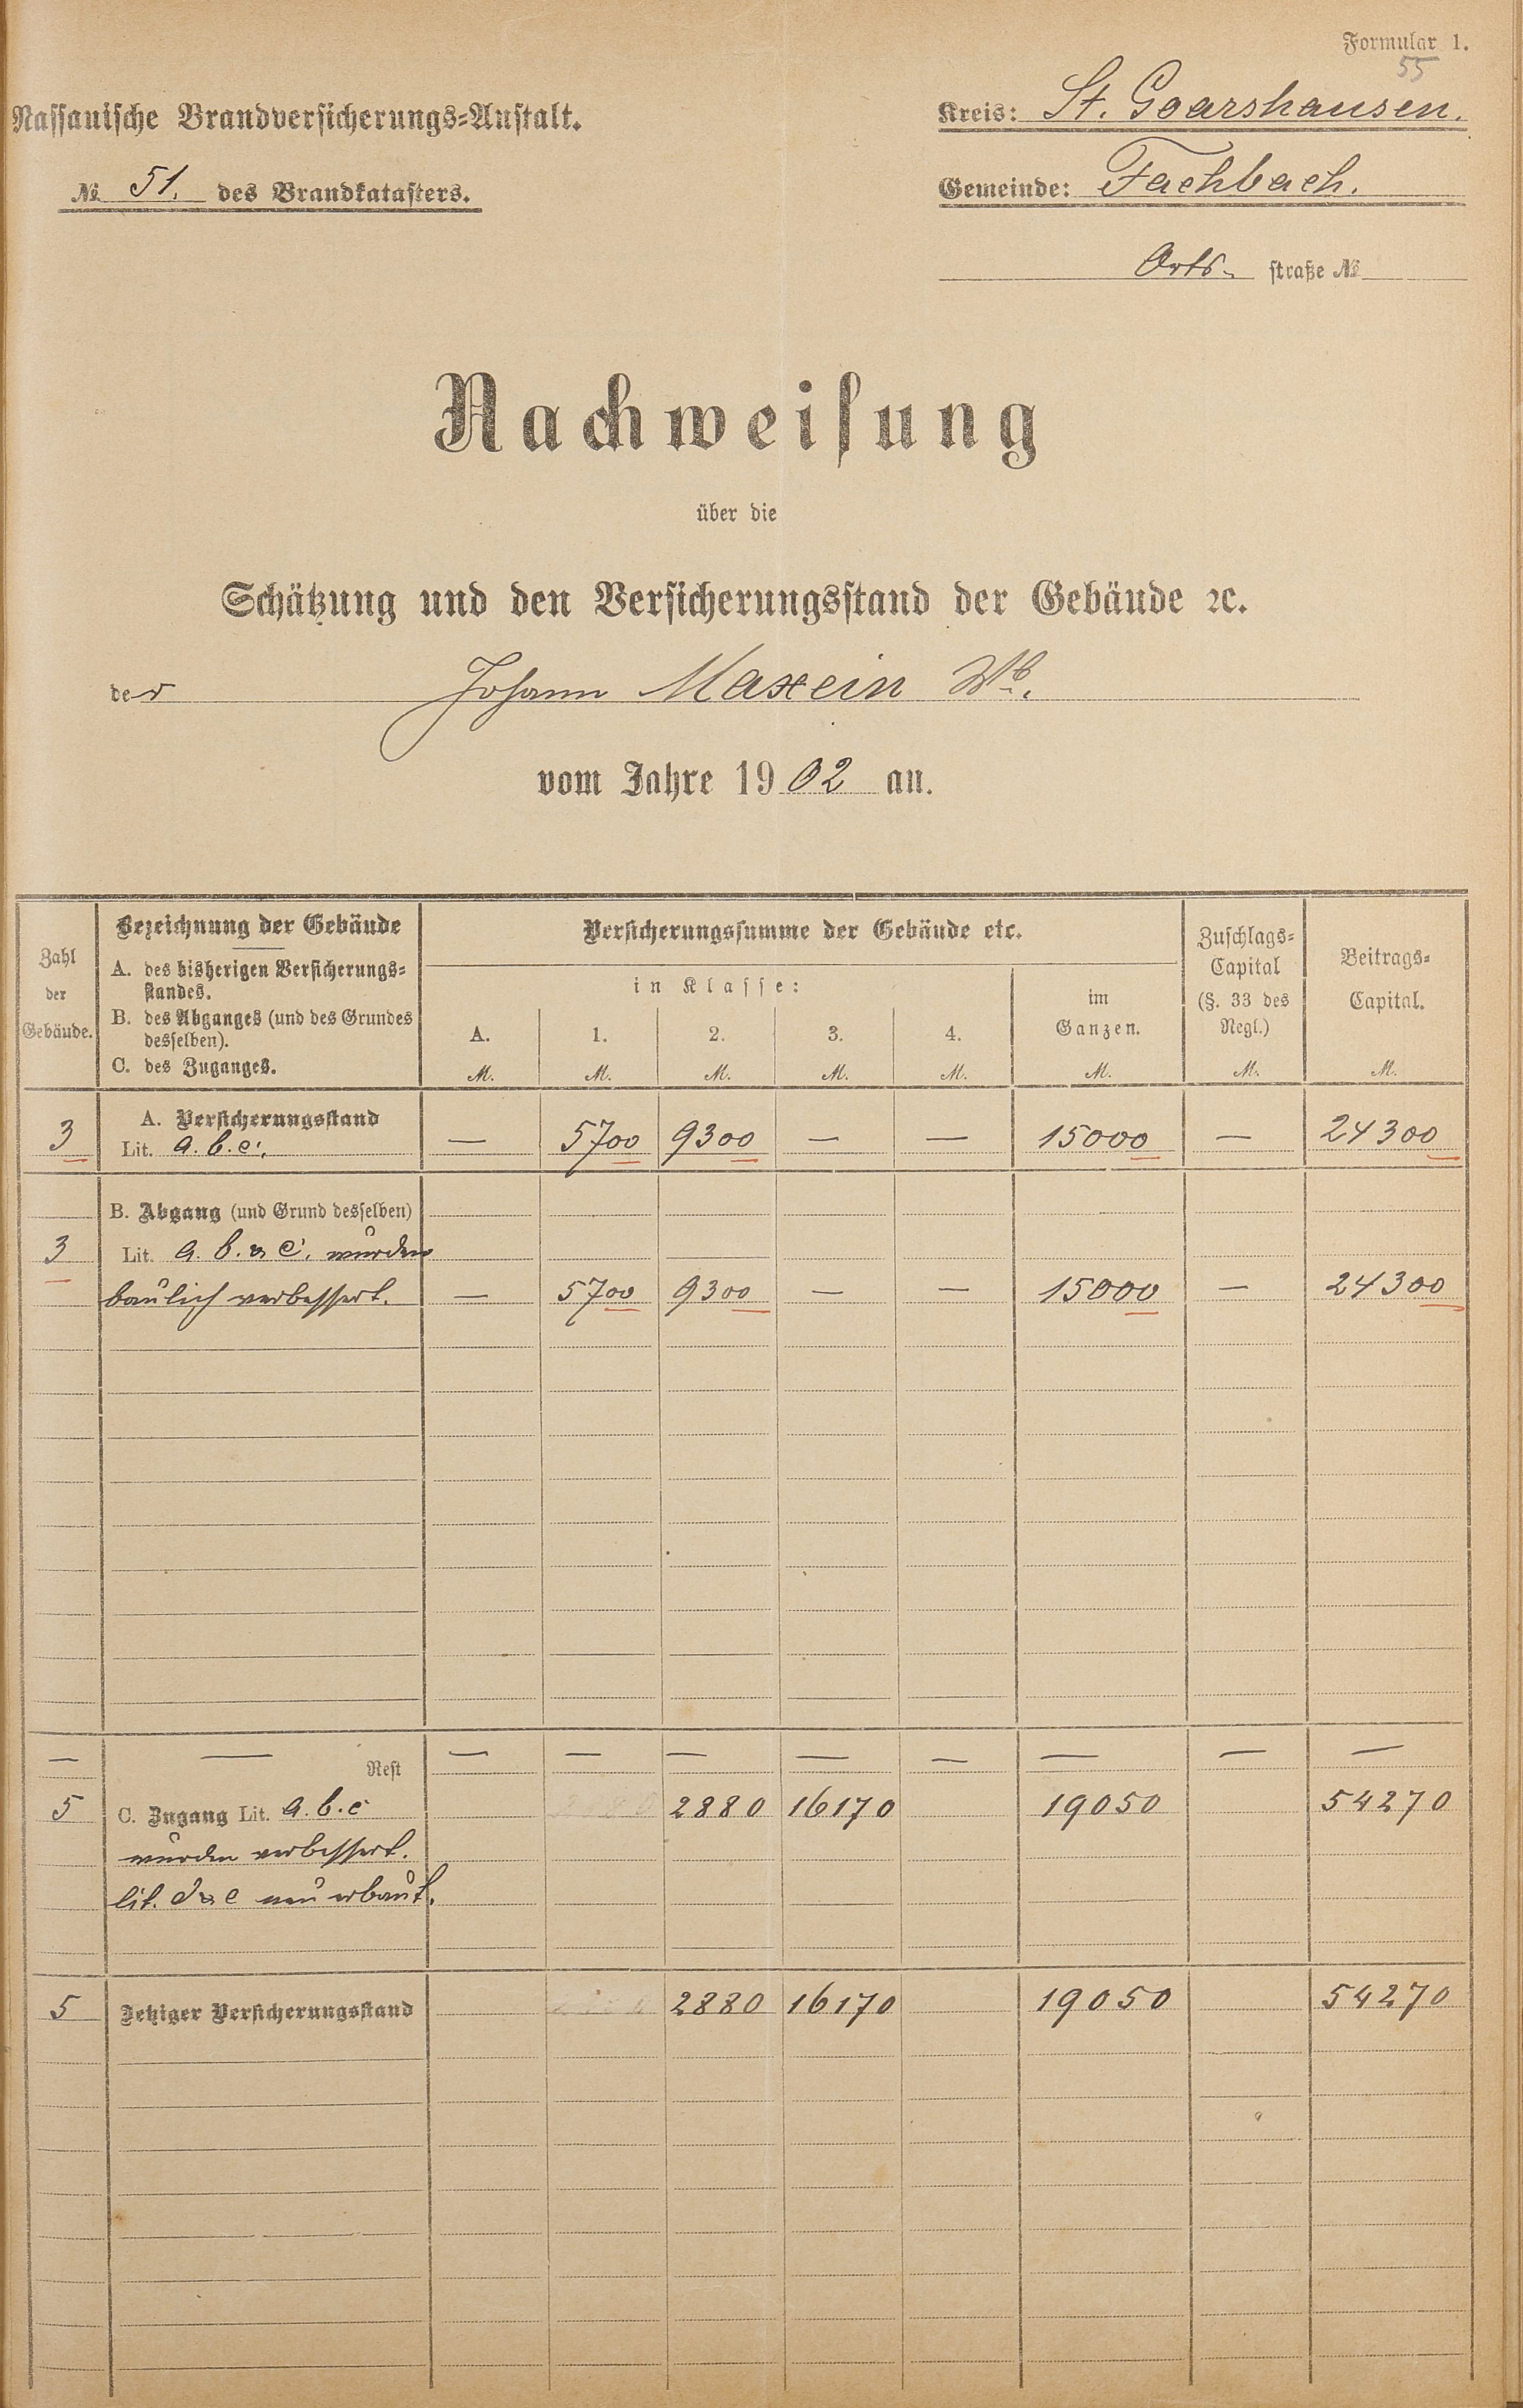 Formular 1.
55
Nassauische Brandversicherungs-Anstalt.
Kreis: St. Goarshausen.
№ 51. des Brandkatasters.
Gemeinde: Fachbach.
Orts- straße №
Nachweisung
über die
Schätzung und den Versicherungsstand der Gebäude ꝛc.
der Johann Maxein Wb.
vom Jahre 1902 an.
Zahl der Gebäude.
Bezeichnung der Gebäude
A. des bisherigen Versicherungs-
standes.
B. des Abganges (und des Grundes
desselben).
C. des Zuganges.
Versicherungssumme der Gebäude etc.
in Klasse:
A. 1. 2. 3. 4.
im
Ganzen.
Zuschlags-
Capital
(§. 33 des
Regl.)
Beitrags-
Capital.
M. M. M. M. M. M. M. M.
A. Versicherungsstand
3 Lit. a. b. c. — 5700 9300 — — 15000 — 24300
B. Abgang (und Grund desselben)
3 Lit. a. b. & c. wurden
baulich verbessert. — 5700 9300 — — 15000 — 24300
— — Rest — — — — — — — —
5 C. Zugang Lit. a. b. c 2880 16170 19050 54270
wurden verbessert.
lit. d & e neu erbaut.
5 Jetziger Versicherungsstand 2880 16170 19050 54270